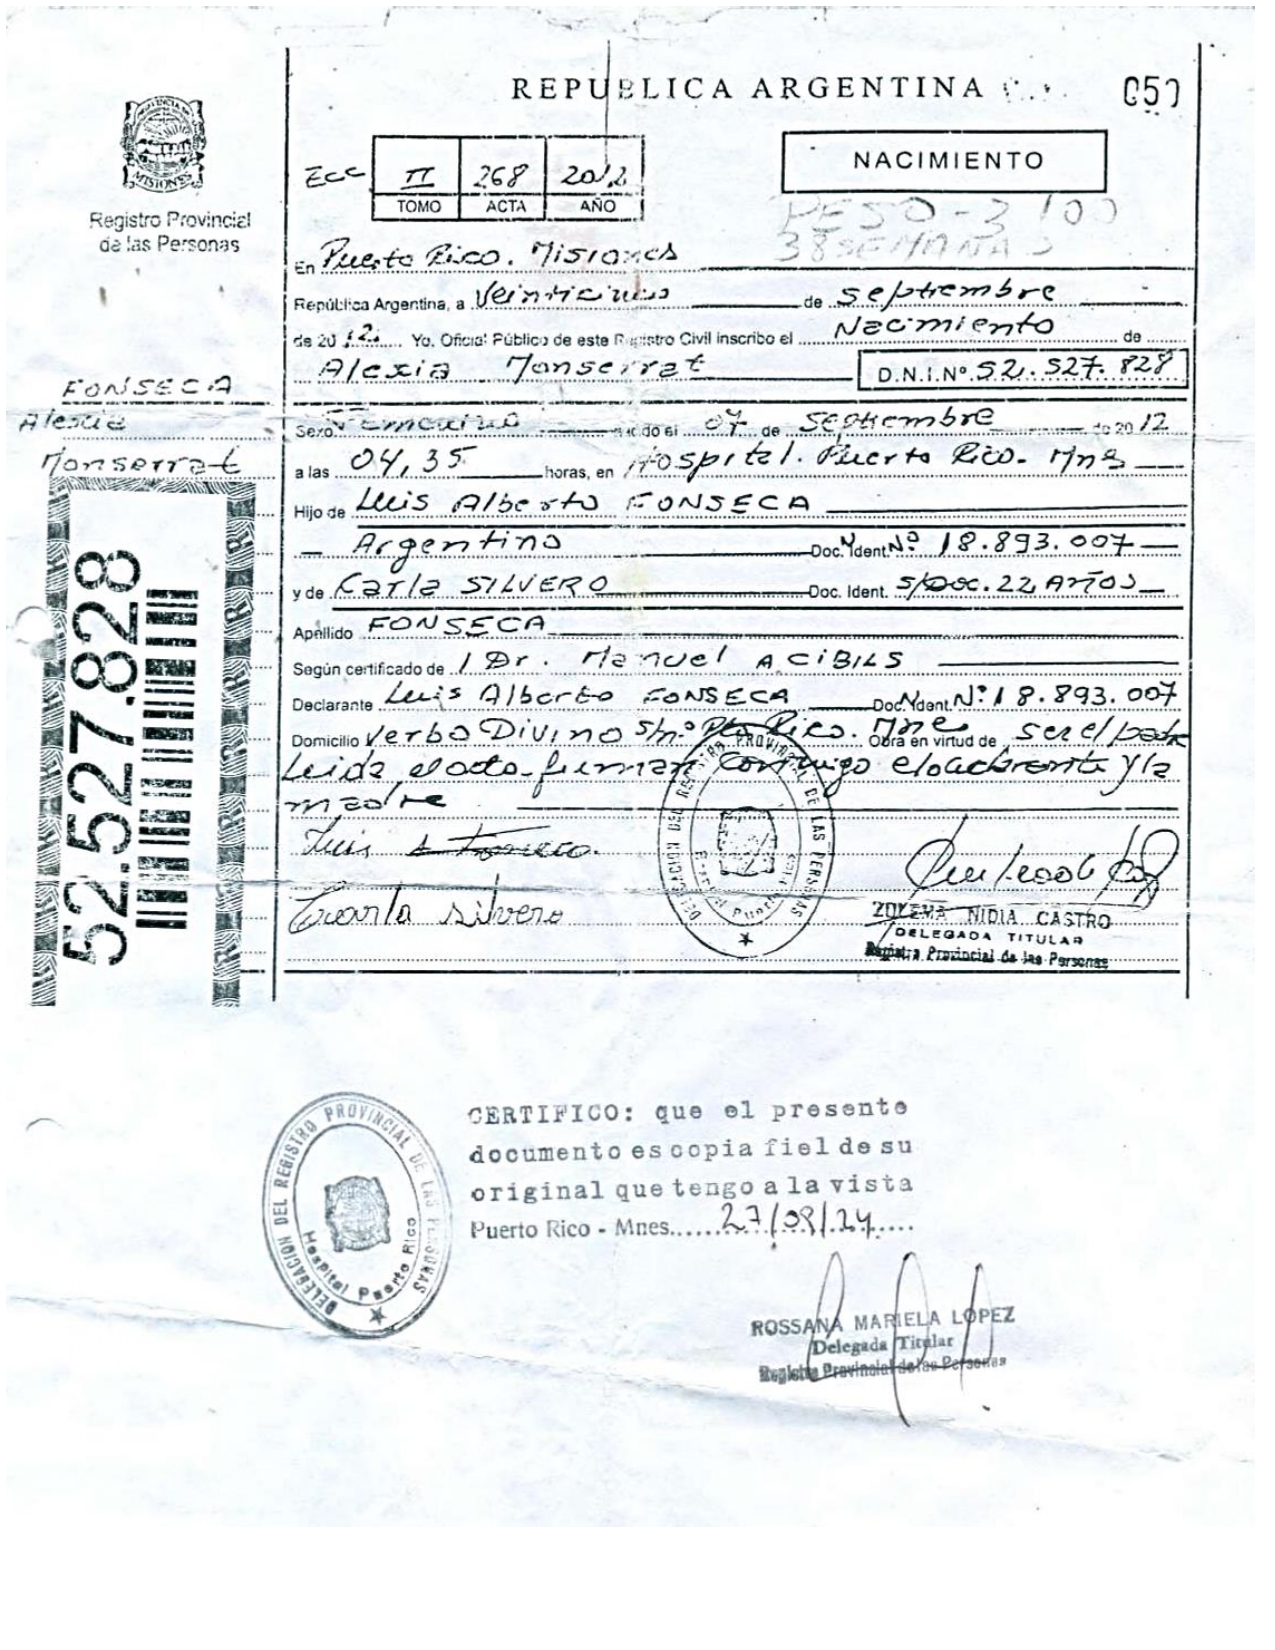 REPUBLICA ARGENTINA
050
MISIONES
Registro Provincial
de las Personas
Ecc II 268 2012
TOMO ACTA AÑO
NACIMIENTO
PESO-3100
38 SEMANAS
En Puerto Rico. Misiones
República Argentina, a Veinticinco de septiembre
de 2012 Yo, Oficial Público de este Registro Civil inscribo el Nacimiento de
Alexia Monserrat D.N.I.Nº 52.527.828
FONSECA
Alexia
Monserrat
52.527.828
Sexo Femenino nacido el 07 de septiembre de 2012
a las 04,35 horas, en Hospital. Puerto Rico. Mnes
Hijo de Luis Alberto FONSECA
Argentino Doc. Ident. Nº 18.893.007
y de Carla SILVERO Doc. Ident. s/Doc. 22 AÑOS
Apellido FONSECA
Según certificado de l Dr. Manuel ACIBILS
Declarante Luis Alberto FONSECA Doc. Ident. Nº 18.893.007
Domicilio Verbo Divino s/nº Pto Rico. Mne Obra en virtud de ser el padre
Leida el acta firman conmigo el declarante y la
madre
DELEGACION DEL REGISTRO PROVINCIAL DE LAS PERSONAS
Luis A Fonseca.
Carla Silvero
ZULEMA NIDIA CASTRO
DELEGADA TITULAR
Registro Provincial de las Personas
DELEGACION DEL REGISTRO PROVINCIAL DE LAS PERSONAS
Hospital Puerto Rico
CERTIFICO: que el presente
documento es copia fiel de su
original que tengo a la vista
Puerto Rico - Mnes.....27/08/24....
ROSSANA MARIELA LOPEZ
Delegada Titular
Registro Provincial de las Personas